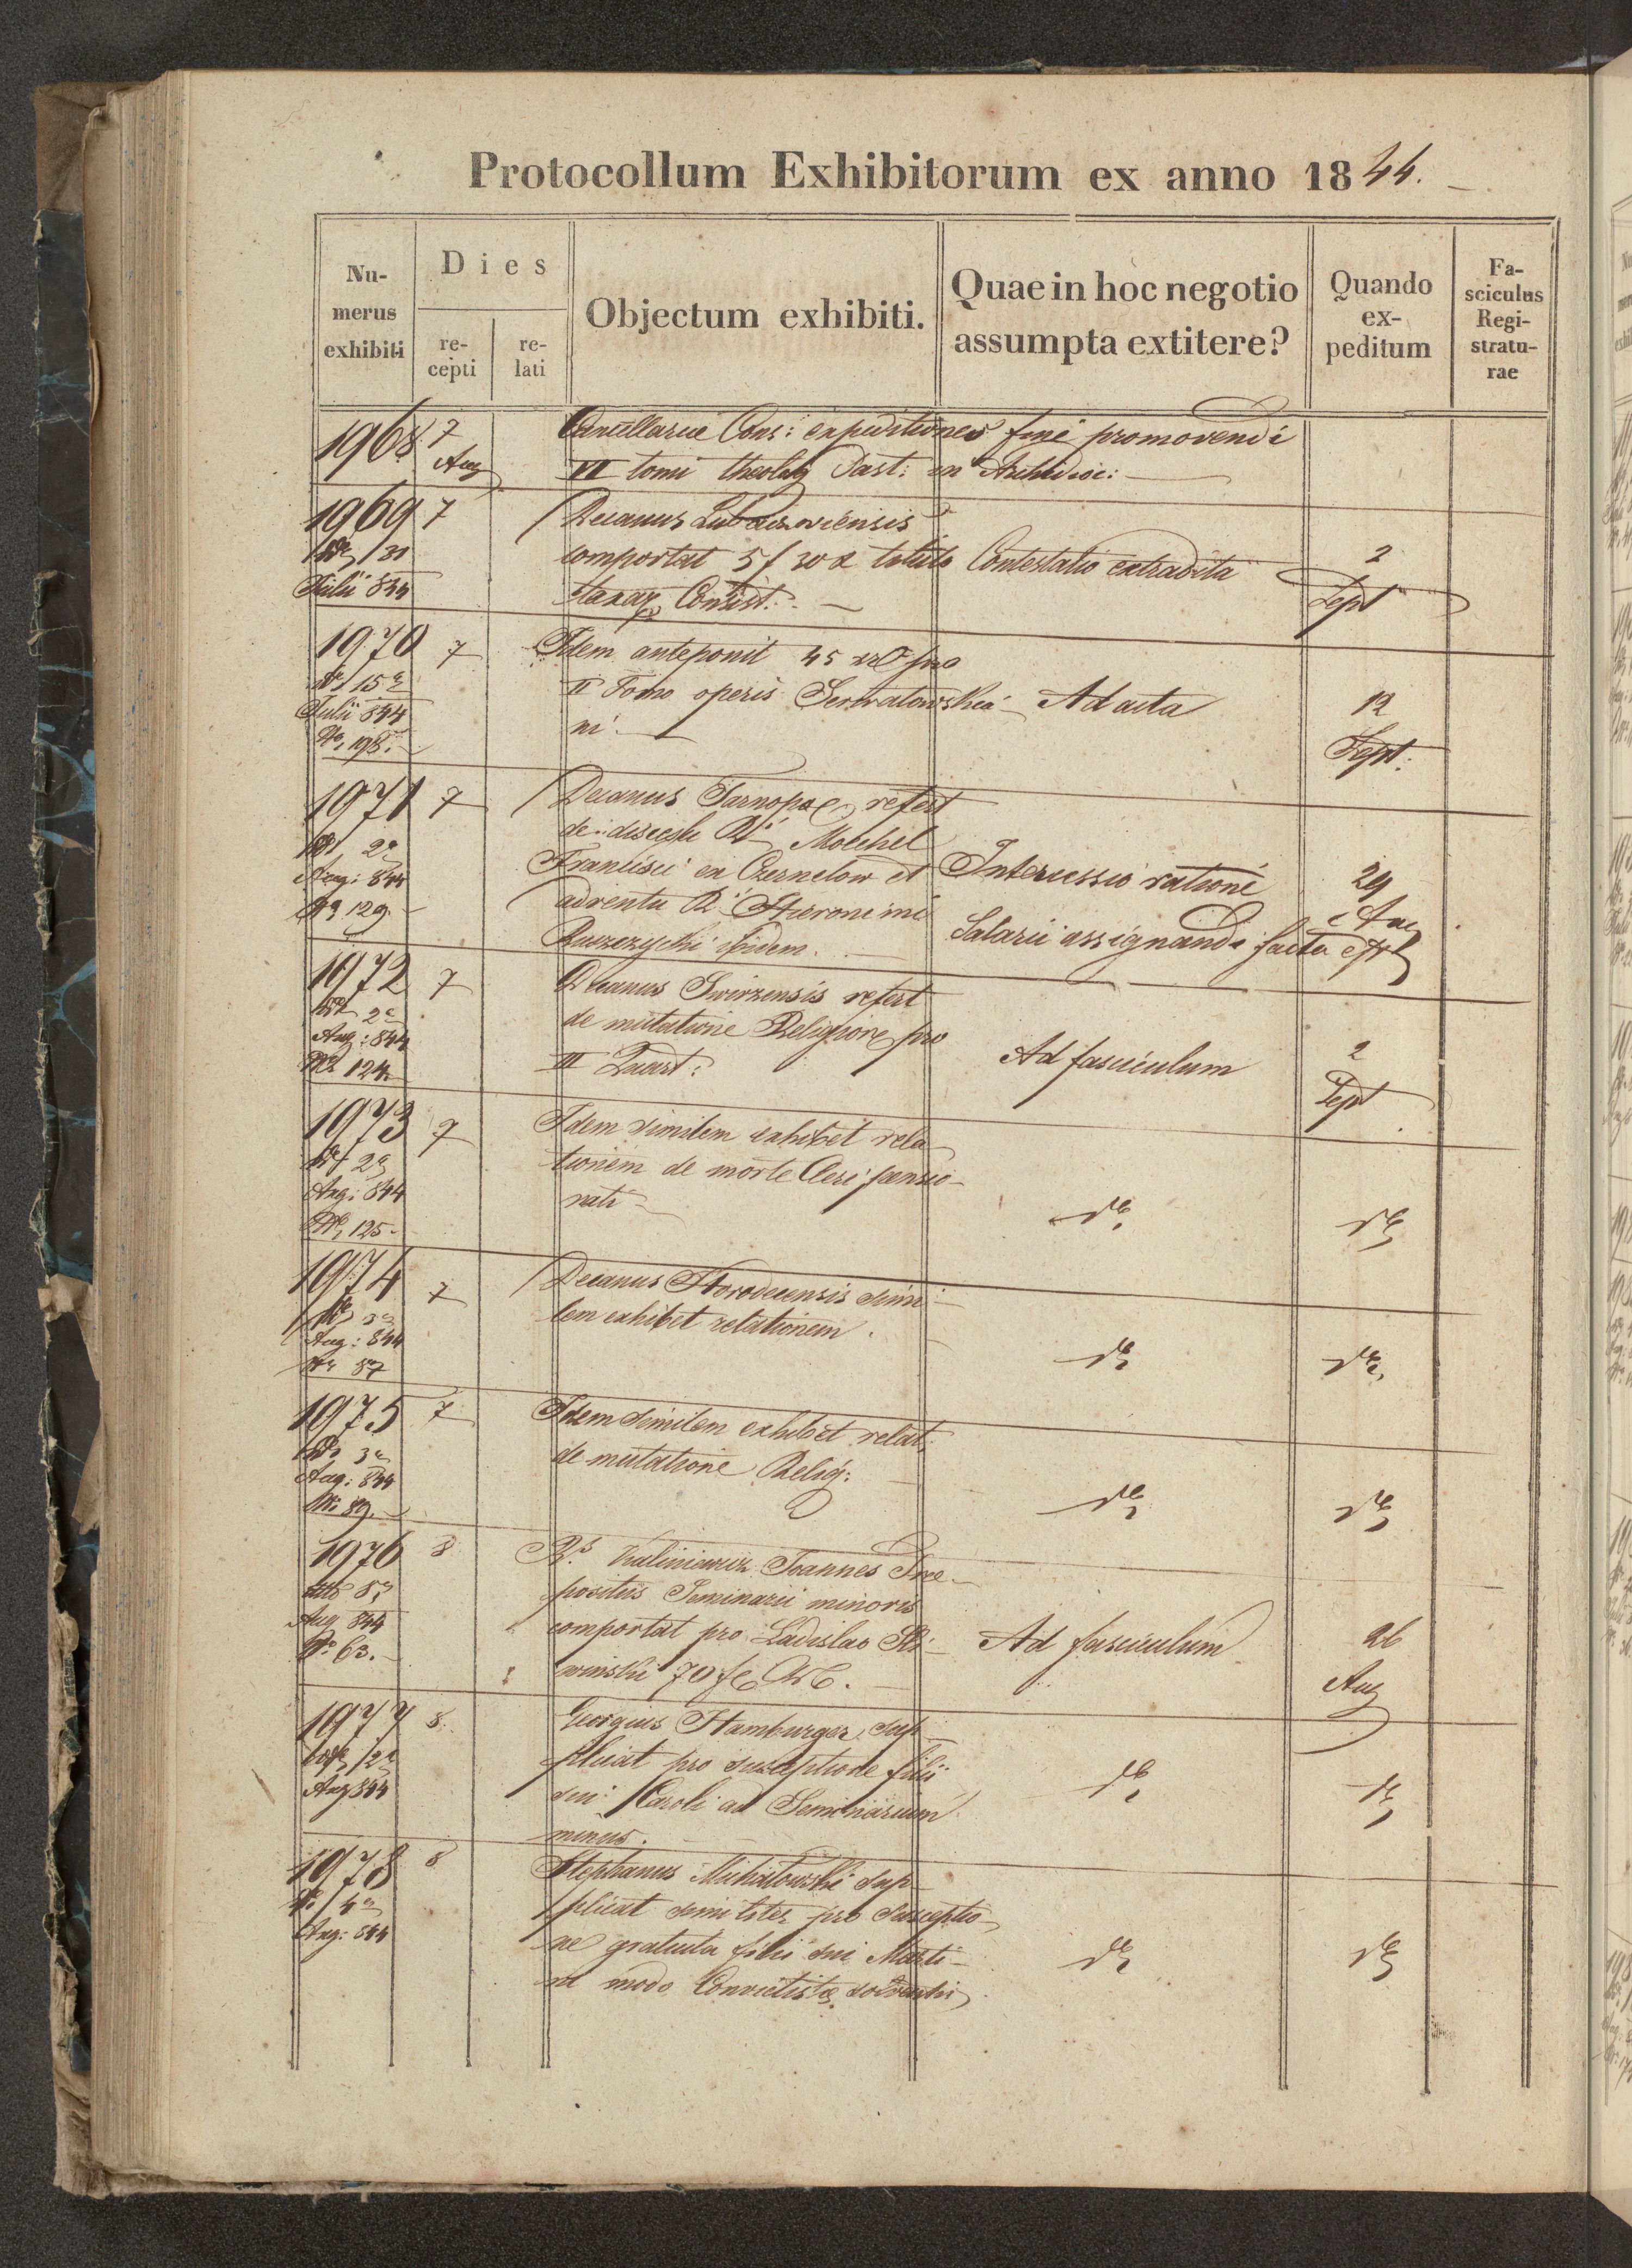 Protocollum Exhibitorum ex anno 1844.
Nu-
merus
exhibiti
Dies
re-
cepti
re-
lati
Objectum exhibiti.
Quae in hoc negotio
assumpta extitere?
Quando
ex-
peditum
Fa-
sciculus
Regi-
stratu-
rae
1968 7
Aug
Cancellariae Cons: expeditiones fine promovendi
VI tomi theolog Past: in Archidioc:
1969 7
31
Julii 844
Decanus Lubaczoviensis
comportat 5 f 30 x titulo
taxar Consist.
Contestatio extradita
2
Sept
1970 7
15
Julii 844
198.
Idem anteponit 45 pro
II Tomo operis Serwatowskia-
ni.
Ad acta
12
Sept:
1971 7
2
Aug: 844
129.
Decanus Tarnopol refert
de discessu R Molchel
Francisci ex Czernelow et
adventu R Hieronimi
Ruczczycki ibidem.
Intercessio ratione
Salarii assignandi facta est
29
Aug
1972 7
2
Aug: 844
124
Decanus Swirzensis refert
de mutatione Religione pro
III Quart:
Ad fasciculum
2
Sept
1973 7
2
Aug: 844
125.
Idem similem exhibet rela-
tionem de morte Cleri pensio-
nati
1974 7
3
Aug: 844
87
Decanus Horodecensis simi-
lem exhibet relationem.
1975 7
3
Aug: 844
89.
Idem similem exhibet relat:
de mutatione Relig:
1976 8
8
Aug 844
No 63.
Kaliniewicz Joannes Prae-
positus Seminarii minoris
comportat pro Ladislao Sli-
winski 70 f
Ad fasciculum
26
Aug
1977 8.
2
Aug 844
Georgius Hamburger sup-
plicat pro susceptione filii
sui Caroli ad Seminarium
minus.
1978 8
4
Aug: 844
Stephanus Michalowski sup-
plicat similiter pro susceptio-
ne gratuita filii sui Marti-
ni modo Convictistae solventis